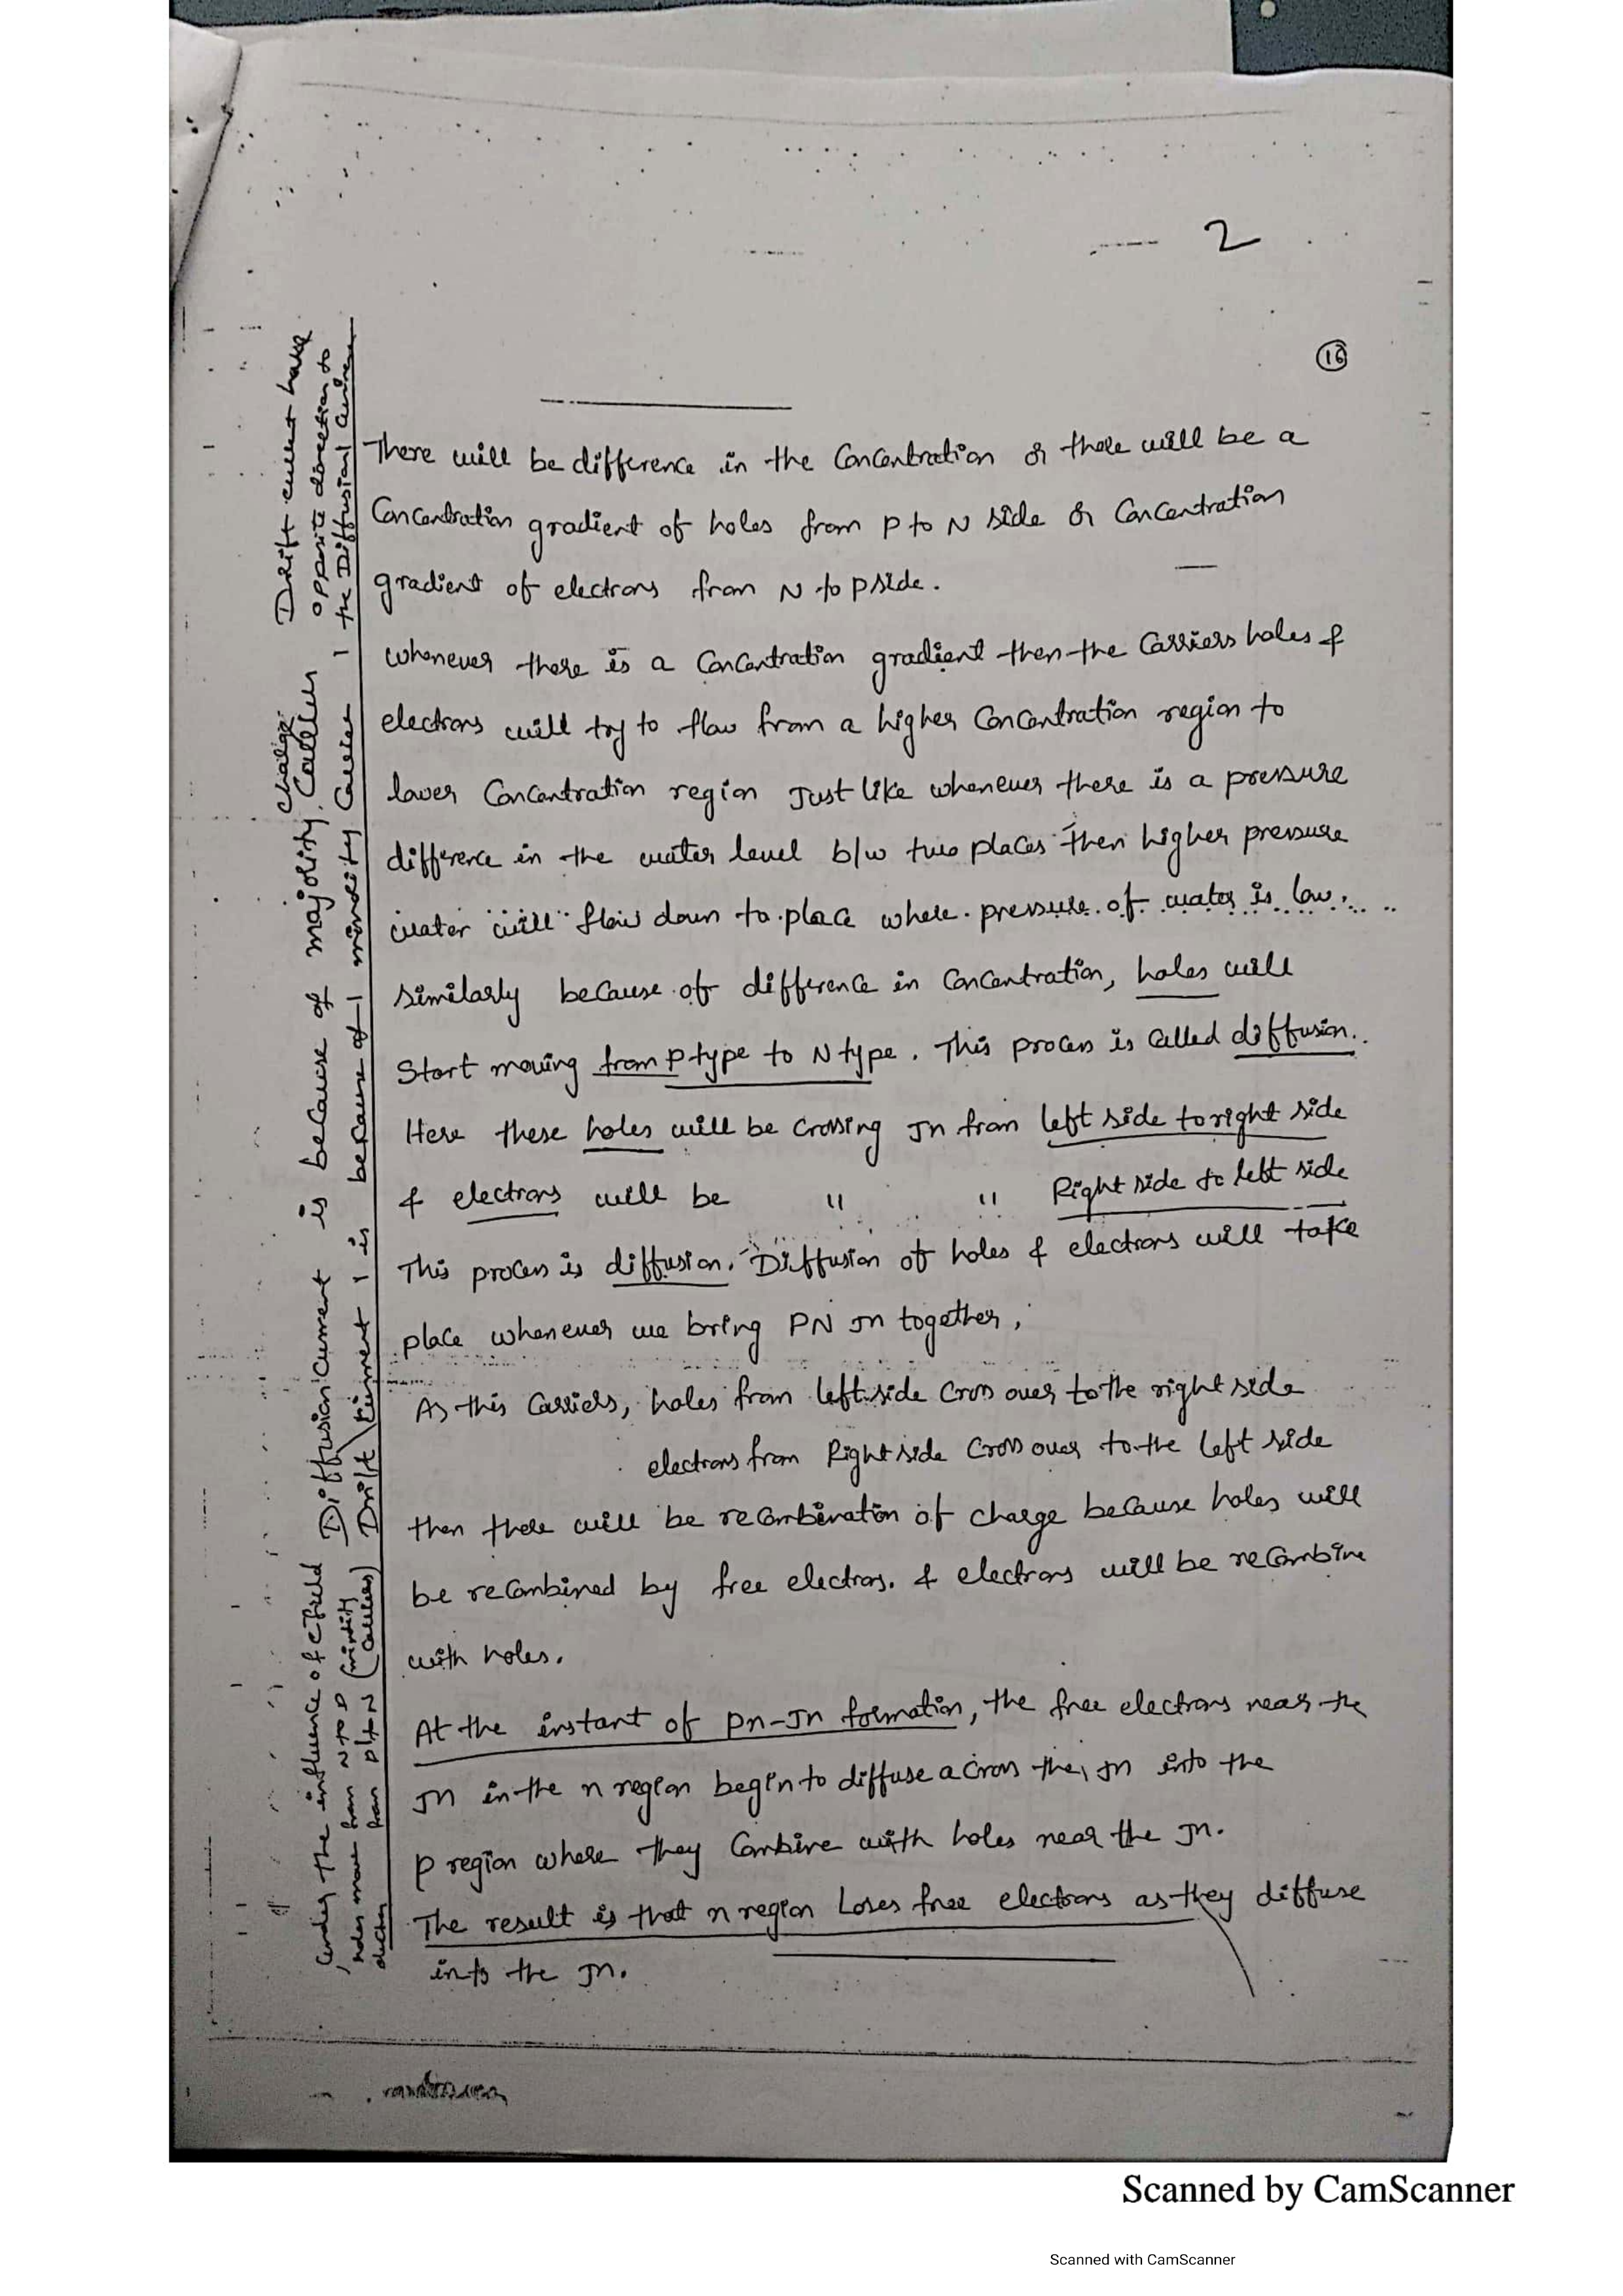 2
16
There will be difference in the Concentration or there will be a
Concentration gradient of holes from P to N side or Concentration
gradient of electrons from N to P side.
whenever there is a Concentration gradient then the Carriers holes &
electrons will try to flow from a higher Concentration region to
lower Concentration region Just like whenever there is a pressure
difference in the water level b/w two places then higher pressure
water will flow down to place where pressure of water is low.
similarly because of difference in Concentration, holes will
Start moving from P type to N type. This process is called diffusion.
Here these holes will be Crossing Jn from left side to right side
& electrons will be " " Right side to left side
This process is diffusion. Diffusion of holes & electrons will take
place whenever we bring PN Jn together,
As this Carriers, holes from left side Cross over to the right side
electrons from Right side Cross over to the left side
then there will be recombination of charge because holes will
be recombined by free electrons. & electrons will be recombine
with holes.
At the instant of Pn-Jn formation, the free electrons near the
Jn in the n region begin to diffuse across the Jn into the
P region where they Combine with holes near the Jn.
The result is that n region Loses free electrons as they diffuse
into the Jn.
Diffusion Current is because of majority charge Carriers
Drift Current is because of minority Carrier
Drift current have
opposite direction to
the Diffusional Current
Under the influence of Efield
holes move from N to P (minority
from P to N Carriers)
Scanned by CamScanner
Scanned with CamScanner